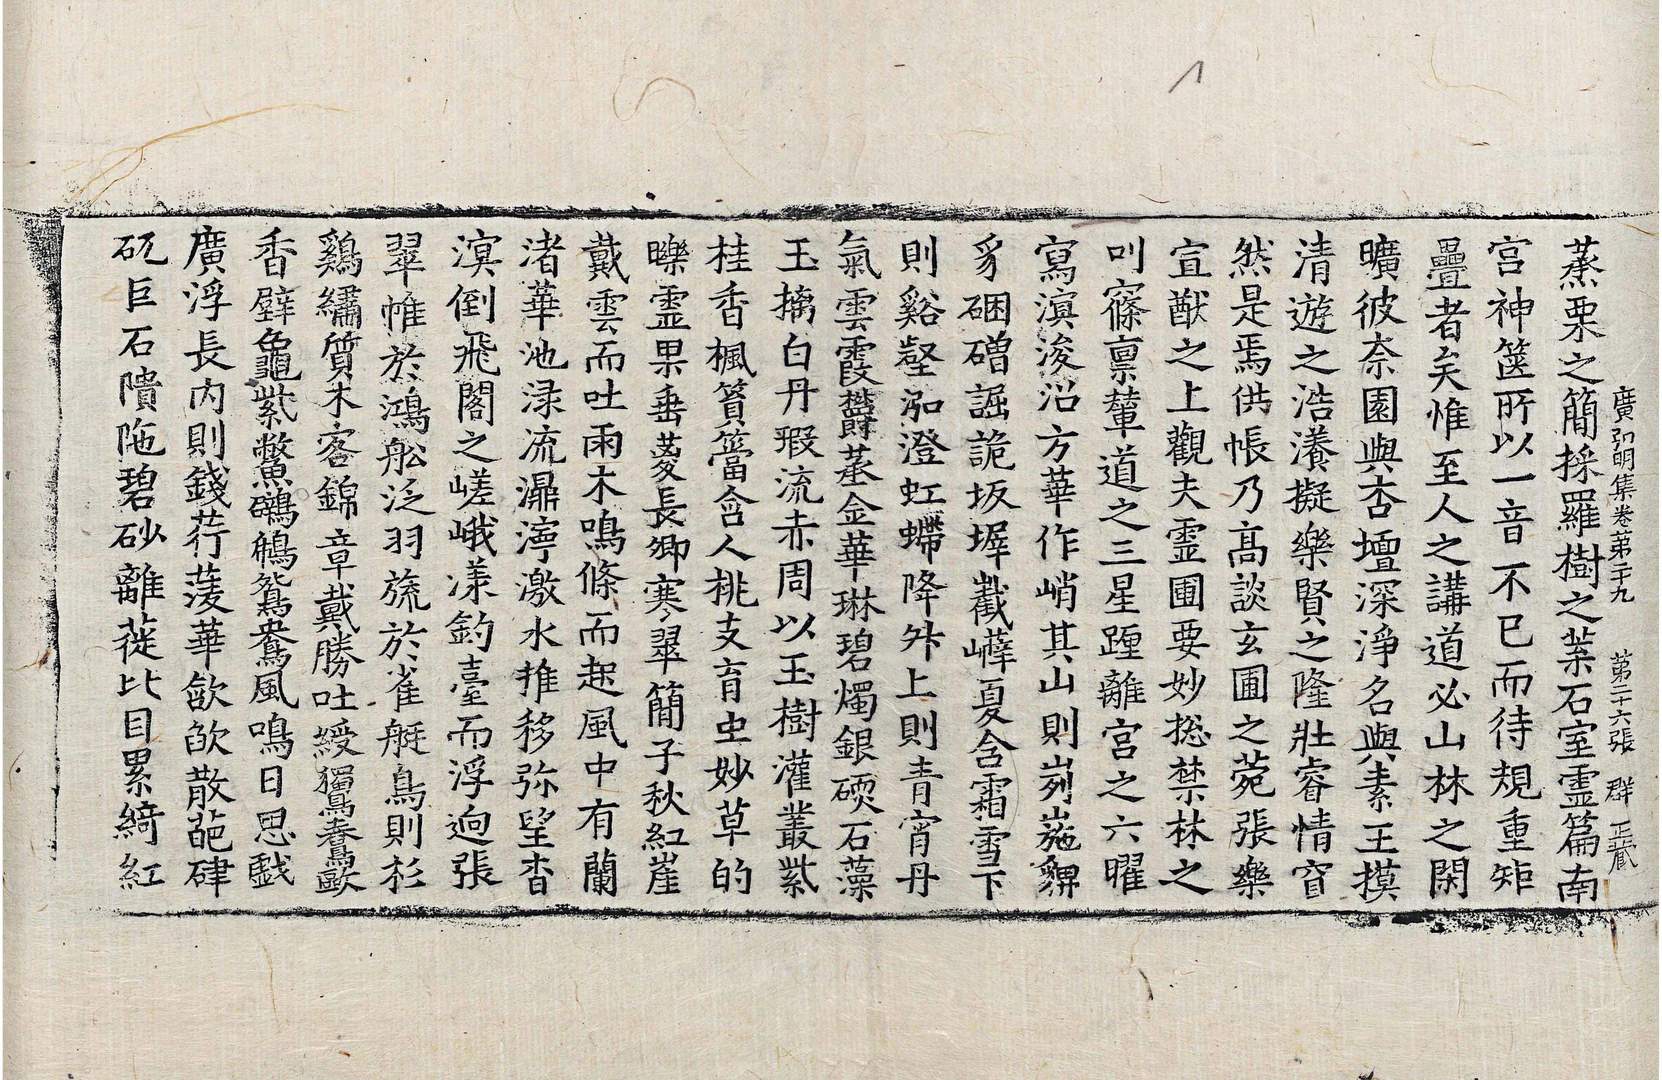 廣弘明集卷第二十九 第二十六張 群 正藏
蒸栗之簡採羅樹之葉石室靈篇南
宮神篋所以一音不已而待規重矩
疊者矣惟至人之講道必山林之閑
曠彼柰園與杏壇深淨名與素王摸
清遊之浩瀁擬樂賢之隆壯睿情窅
然是焉供帳乃高談玄圃之菀張樂
宣猷之上觀夫靈圃要妙捴禁林之
叫窱稟輦道之三星躔離宮之六曜
寫溟浚沼方華作峭其山則峛崺
豸硱磳詘詭坂墀巀嶭夏含霜雪下
則谿壑泓澄虹蜺降外上則青宵丹
氣雲霞欝蒸金華琳碧燭銀碝石藻
玉摛白丹瑕流赤周以玉樹灌叢紫
桂香楓篔簹含人桃支育虫妙草的
皪靈果垂蔆長卿寒翠簡子秋紅崖
戴雲而吐雨木鳴條而起風中有蘭
渚華池渌流瀑濘激水推移弥望杳
溟倒飛閣之嵯峨漾釣臺而浮逈張
翠帷於鴻舩泛羽旒於雀艇鳥則杉
鷄繡質木客錦章戴勝吐綬鸀鴦鷗
香壁龜紫鷩鴛鴦風鳴日思戲
廣浮長内則錢荇菱華歛㰱散葩硉
矹巨石隤陁碧砂離蓰比目累綺紅